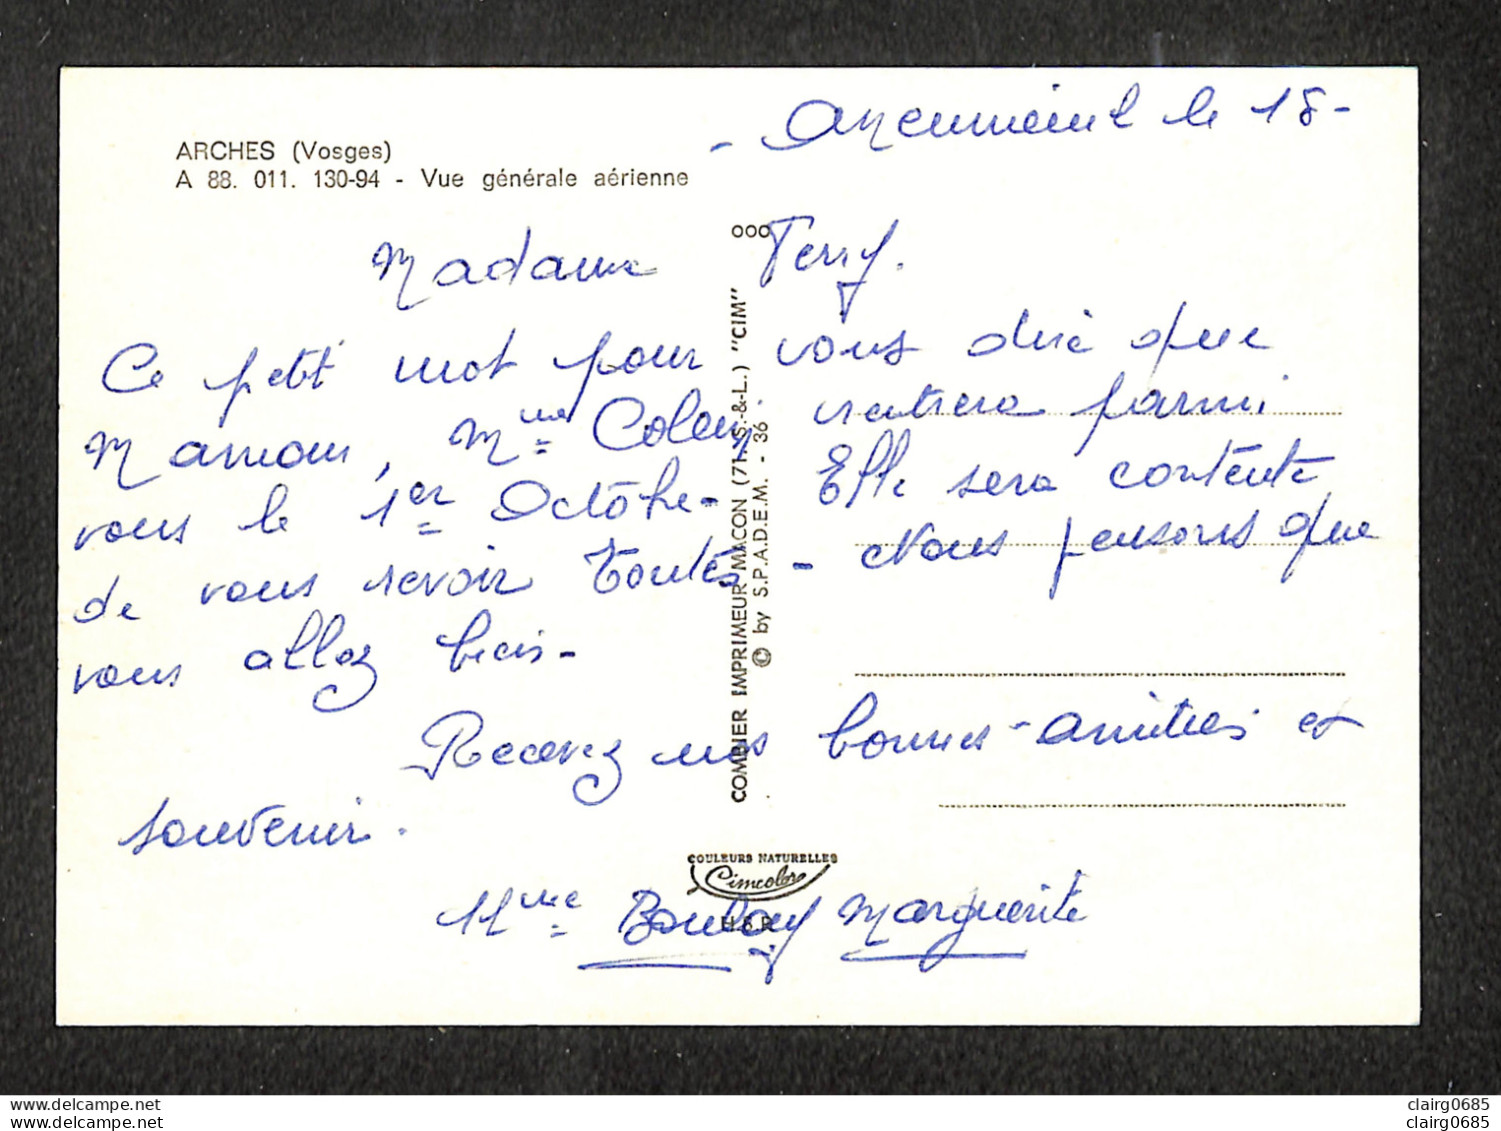 ARCHES (Vosges)
A 88. 011. 130-94 - Vue générale aérienne
- le 18-
Madame Ferry.
Ce petit mot pour vous dire que
Maman, Mme Colin rentrera parmi
vous le 1er Octobre - Elle sera contente
de vous revoir toutes - Nous pensons que
vous allez bien -
Recevez nos bonnes amitiés et
souvenir.
Mme Boulay Marguerite
COMBIER IMPRIMEUR MACON (71.-S.-&-L.) "CIM"
© by S.P.A.D.E.M. - 36
COULEURS NATURELLES
Cimcolor
delcampe.net
clairg0685
clairg0685